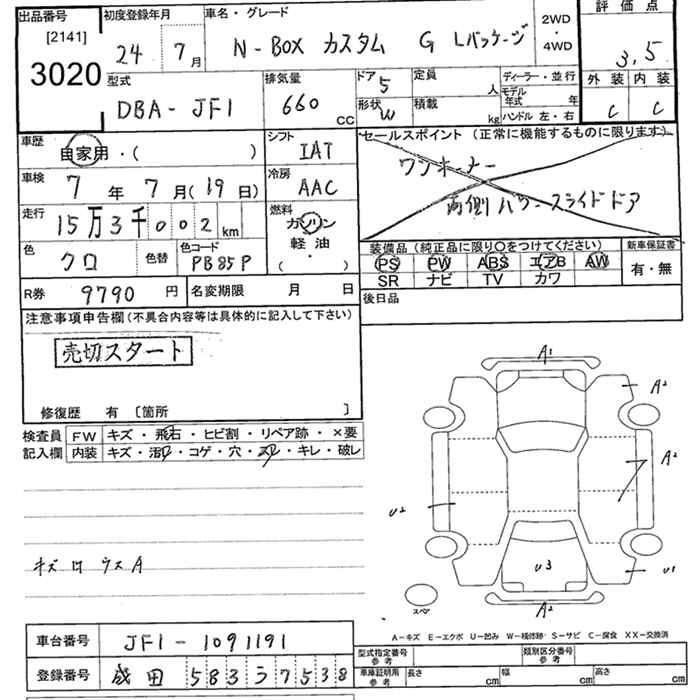 出品番号 初度登録年月 車名・グレード 2WD・4WD 評価点
[2141]
3020 24 7月 N-BOX カスタム G Lパッケージ 3.5
型式 排気量 ドア 5 定員 人 ディーラー・並行 外装 内装
DBA-JF1 660 CC 形状 W 積載 kg モデル年式 年 C C
ハンドル 左・右
車歴 自家用・( ) シフト IAT セールスポイント(正常に機能するものに限ります)
ワンオーナー
車検 7年7月(19日) 冷房 AAC 両側パワースライドドア
走行 15万3千002km 燃料 ガソリン 軽油・( )
装備品(純正品に限り○をつけてください) 新車保証書
色 クロ 色替 色コード PB85P PS PW ABS エアB AW 有・無
SR ナビ TV カワ
R券 9790円 名変期限 月 日 後日品
注意事項申告欄(不具合内容等は具体的に記入して下さい)
売切スタート
修復歴 有 〔箇所 〕
検査員 FW キズ・飛石・ヒビ割・リペア跡・×要
記入欄 内装 キズ・汚レ・コゲ・穴・スレ・キレ・破レ
A1
A2
A2
U2
キズロウスA
U3
U1
スペア
A2
A-キズ E-エクボ U-凹み W-補修跡 S-サビ C-腐食 XX-交換済
車台番号 JF1-1091191
型式指定番号参考 類別区分番号参考
登録番号 成田 583う7538
車庫証明用参考 長さ cm 幅 cm 高さ cm